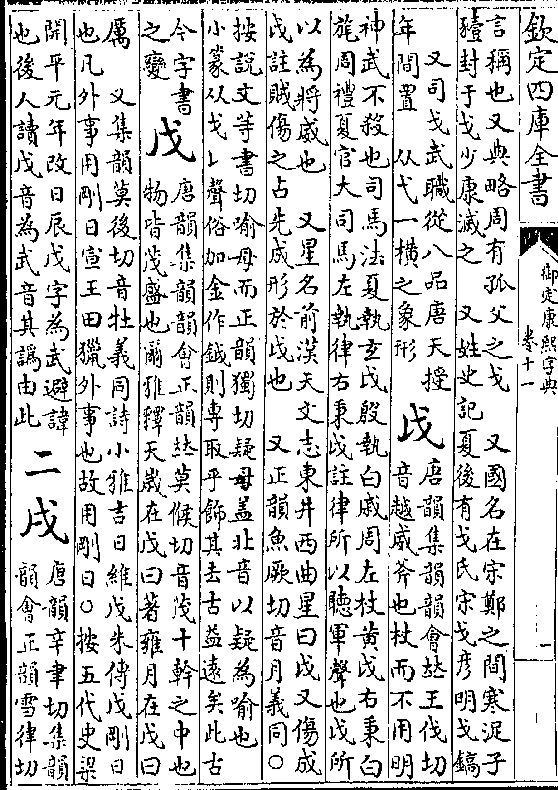 欽定四庫全書
御定康熙字典
卷十一
言稱也又典略周有孤父之戈 又國名在宋鄭之間寒浞子
豷封于戈少康滅之 又姓史記夏後有戈氏宋戈彥明戈鎬
又司戈武職從八品唐天授
年間置 从弋一橫之象形
戉
唐韻集韻韻會𠀤王伐切
音越威斧也杖而不用明
神武不殺也司馬法夏執玄戉殷執白戚周左杖黃戉右秉白
旄周禮夏官大司馬左執律右秉戉註律所以聽軍聲也戉所
以為將威也 又星名前漢天文志東井西曲星曰戉又傷成
戉註賊傷之占先成形於戉也 又正韻魚厥切音月義同○
按說文等書切喻母而正韻獨切疑母蓋北音以疑為喻也
小篆从戈𠄌聲俗加金作鉞則專取乎飾其去古益遠矣此古
今字書
之變
戊
唐韻集韻韻會正韻𠀤莫候切音茂十幹之中也
物皆茂盛也爾雅釋天歲在戊曰著雍月在戊曰
厲 又集韻莫後切音牡義同詩小雅吉日維戊朱傳戊剛日
也凡外事用剛日宣王田獵外事也故用剛日○按五代史梁
開平元年改日辰戊字為武避諱
也後人讀戊音為武音其譌由此
二
戌
唐韻辛聿切集韻
韻會正韻雪律切